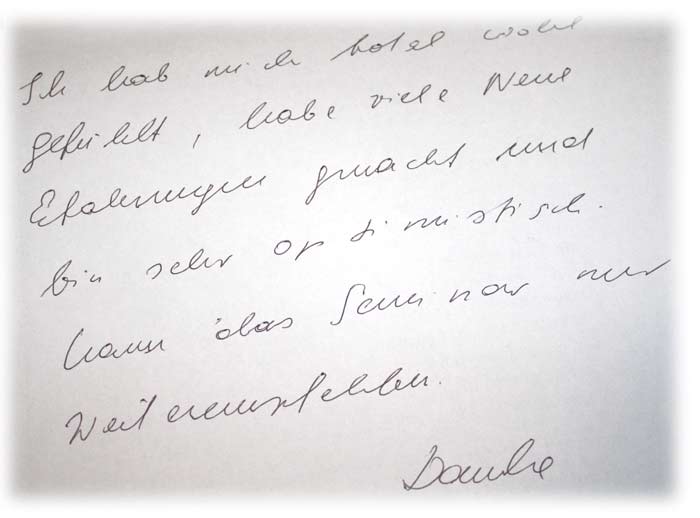 Ich hab mich total wohl
gefühlt, habe viele Neue
Erfahrungen gmacht und
bin sehr optimistisch.
kann das Seminar nur
Weiterempfehlen.
Danke